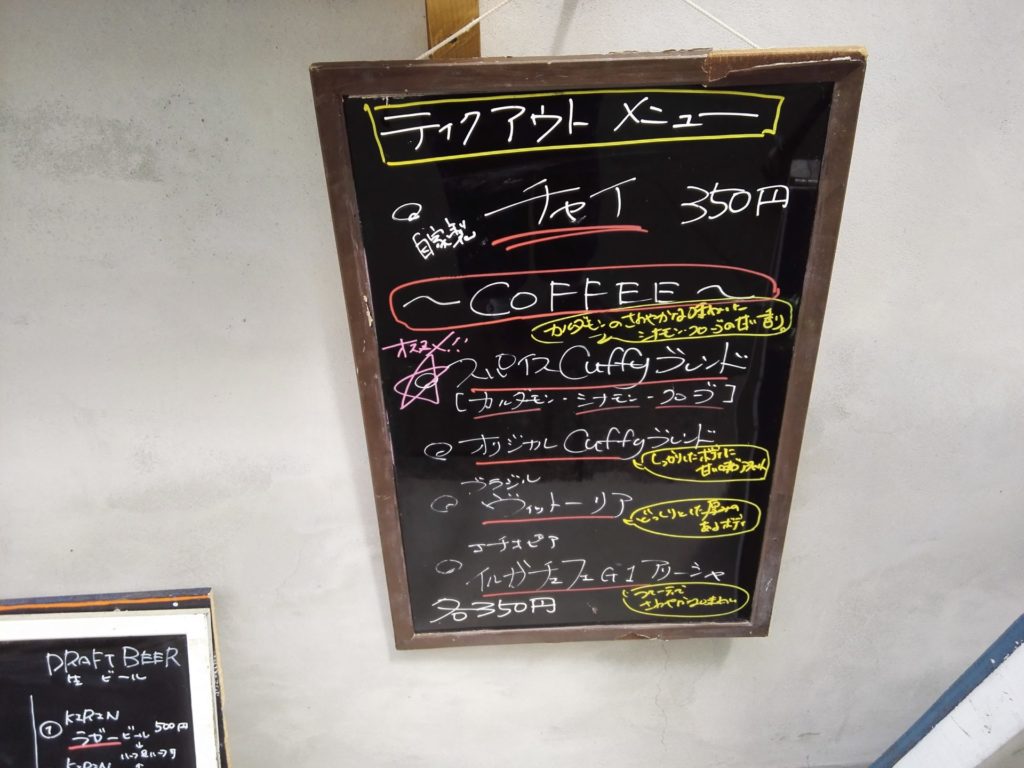 ティクアウト メニュー
自家製 チャイ 350円
~COFFEE~
カルダモンのさわやかな味わいに
シナモン・クローブの甘い香り
オススメ!!
スパイス Cuffyブレンド
[カルダモン・シナモン・クローブ]
オリジナル Cuffyブレンド
しっかりしたボディに
ブラジル
ヴィットーリア
どっしりとした厚みの
あるボディ
エチオピア
イルガチェフェG1 アリーシャ
フルーティで
さわやかな味わい
各350円
DRAFT BEER
生 ビール
① KIRIN
ラガービール 500円
KIRIN